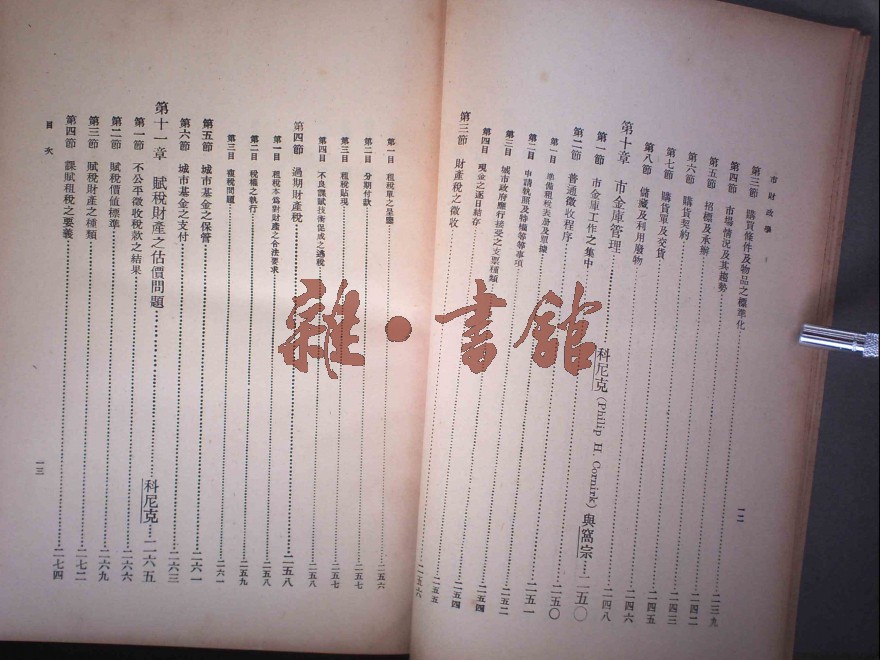 市財政學
一二
第三節 購買條件及物品之標準化……二三九
第四節 市場情況及其趨勢……二四二
第五節 招標及承辦……二四三
第六節 購貨契約……二四五
第七節 購貨單及交貨……二四六
第八節 儲藏及利用廢物……二四八
第十章 市金庫管理……科尼克(Philip H. Cornirk)與窩宗……二五〇
第一節 市金庫工作之集中……二五〇
第二節 普通徵收程序……二五一
第一目 準備租稅表册及單據
第二目 申請執照及特權等等事項……二五二
第三目 城市政府應行接受之支票種類……二五四
第四目 現金之逐日結存……二五五
第三節 財產稅之徵收……二五六
第一目 租稅單之呈繳……二五六
第二目 分期付款……二五七
第三目 租稅貼現……二五七
第四目 不良課賦技術促成之逃稅……二五八
第四節 過期財產稅……二五八
第一目 租稅本爲對財產之合法要求……二五八
第二目 稅權之執行……二五九
第三目 複稅問題……二六一
第五節 城市基金之保管……二六一
第六節 城市基金之支付……二六三
第十一章 賦稅財產之估價問題……科尼克……二六五
第一節 不公平徵收稅款之結果……二六六
第二節 賦稅價值標準……二六九
第三節 賦稅財產之種類……二七二
第四節 課賦租稅之要義……二七四
目次
一三
雜·書館